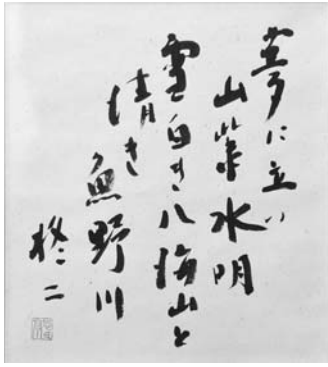 夢に立つ
山紫水明
雪白き八海山と
清き
魚野川
柊二